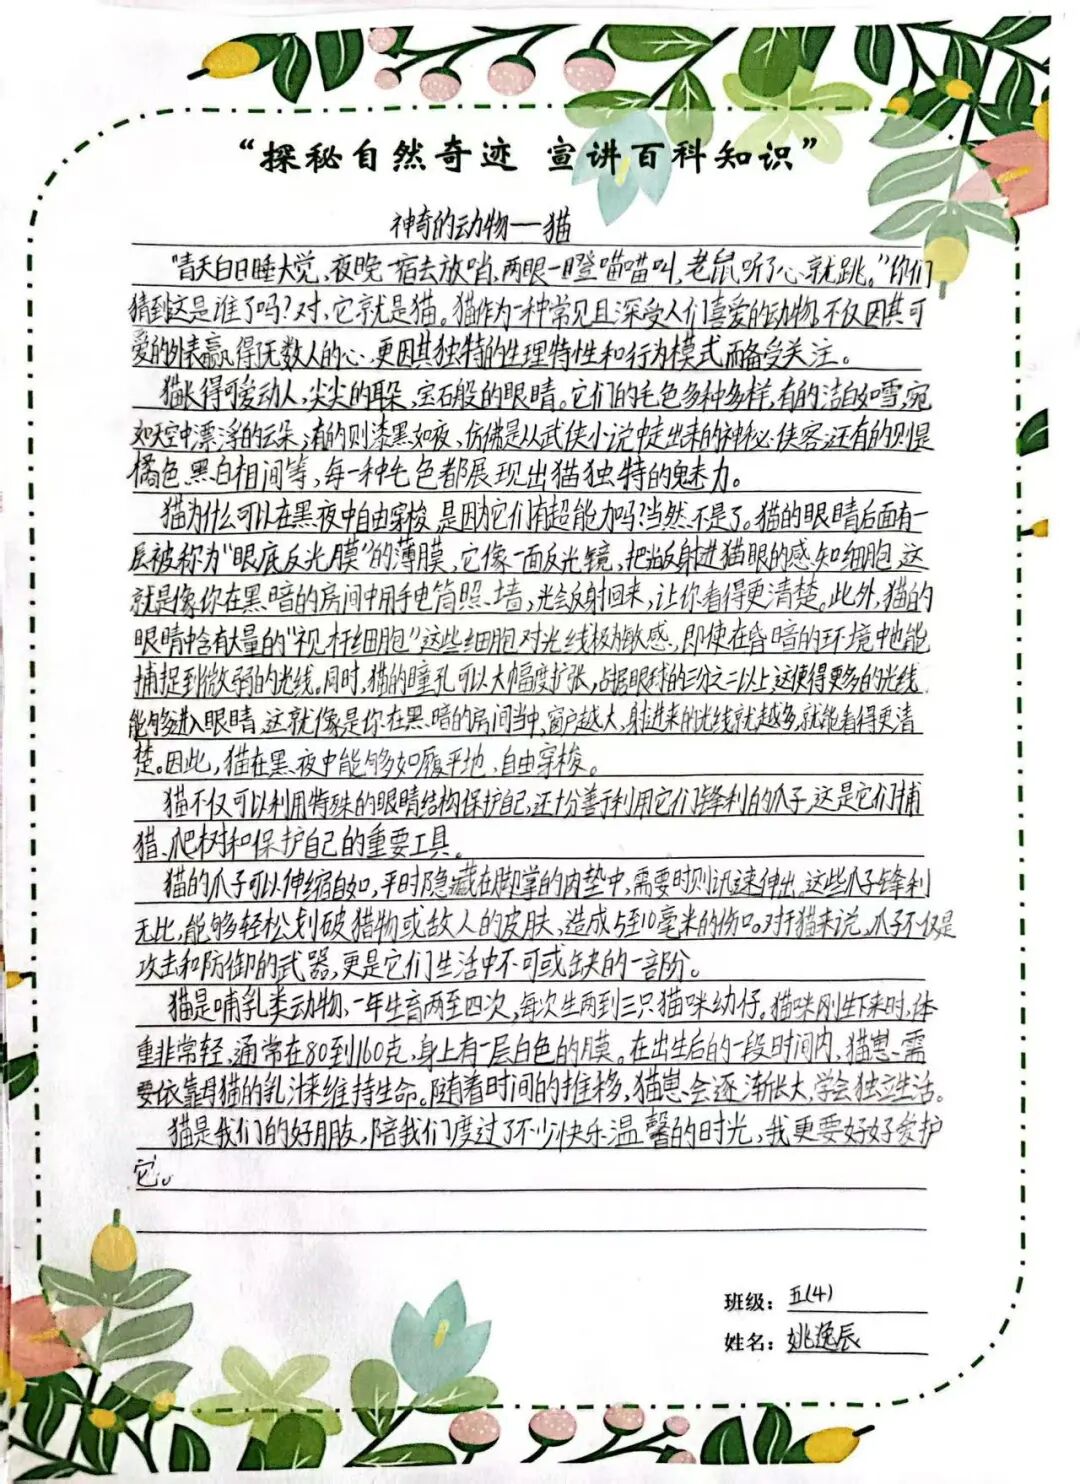 “探秘自然奇迹 宣讲百科知识”
神奇的动物——猫
“青天白日睡大觉，夜晚一宿去放哨，两眼一瞪喵喵叫，老鼠听了心就跳。”你们
猜到这是谁了吗？对，它就是猫。猫作为一种常见且深受人们喜爱的动物，不仅因其可
爱的外表赢得无数人的心，更因其独特的生理特性和行为模式而备受关注。
猫长得可爱动人，尖尖的耳朵，宝石般的眼睛。它们的毛色多种多样，有的洁白如雪，宛
如天空中漂浮的云朵；有的则漆黑如夜，仿佛是从武侠小说中走出来的神秘侠客；还有的则是
橘色、黑白相间等，每一种毛色都展现出猫独特的魅力。
猫为什么可以在黑夜中自由穿梭，是因为它们有超能力吗？当然不是了。猫的眼睛后面有一
层被称为“眼底反光膜”的薄膜，它像一面反光镜，把光反射进猫眼的感知细胞，这
就是像你在黑暗的房间中用手电筒照墙，光会反射回来，让你看得更清楚。此外，猫的
眼睛中含有大量的“视杆细胞”，这些细胞对光线极为敏感，即使在昏暗的环境中也能
捕捉到微弱的光线。同时，猫的瞳孔可以大幅度扩张，占据眼球的三分之二以上，这使得更多的光线
能够进入眼睛，这就像是你在黑暗的房间当中，窗户越大，射进来的光线就越多，就能看得更清
楚。因此，猫在黑夜中能够如履平地、自由穿梭。
猫不仅可以利用特殊的眼睛结构保护自己，还十分善于利用它们锋利的爪子，这是它们捕
猎、爬树和保护自己的重要工具。
猫的爪子可以伸缩自如，平时隐藏在脚掌的肉垫中，需要时则迅速伸出。这些爪子锋利
无比，能够轻松划破猎物或敌人的皮肤，造成5到10毫米的伤口。对于猫来说，爪子不仅是
攻击和防御的武器，更是它们生活中不可或缺的一部分。
猫是哺乳类动物，一年生育两至四次，每次生两到三只猫咪幼仔。猫咪刚生下来时，体
重非常轻，通常在80到160克，身上有一层白色的膜。在出生后的一段时间内，猫崽需
要依靠母猫的乳汁来维持生命。随着时间的推移，猫崽会逐渐长大，学会独立生活。
猫是我们的好朋友，陪我们度过了不少快乐温馨的时光，我更要好好爱护
它。
班级：五(4)
姓名：姚逸辰